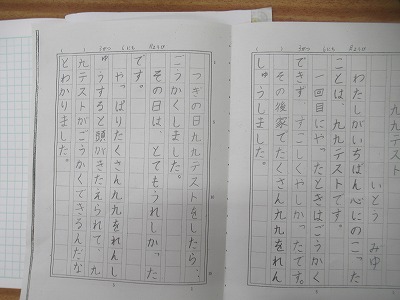 九九テスト
いとう みゆ
わたしがいちばん心にのこった
ことは、九九テストです。
一回目にやったときはごうかく
できず、すこしくやしかったです。
その後家でたくさん九九をれん
しゅうしました。
つぎの日九九テストをしたら、
ごうかくしました。
その日は、とてもうれしかった
です。
やっぱりたくさん九九をれんし
ゅうすると頭がきたえられて、九
九テストがごうかくできるんだな
とわかりました。